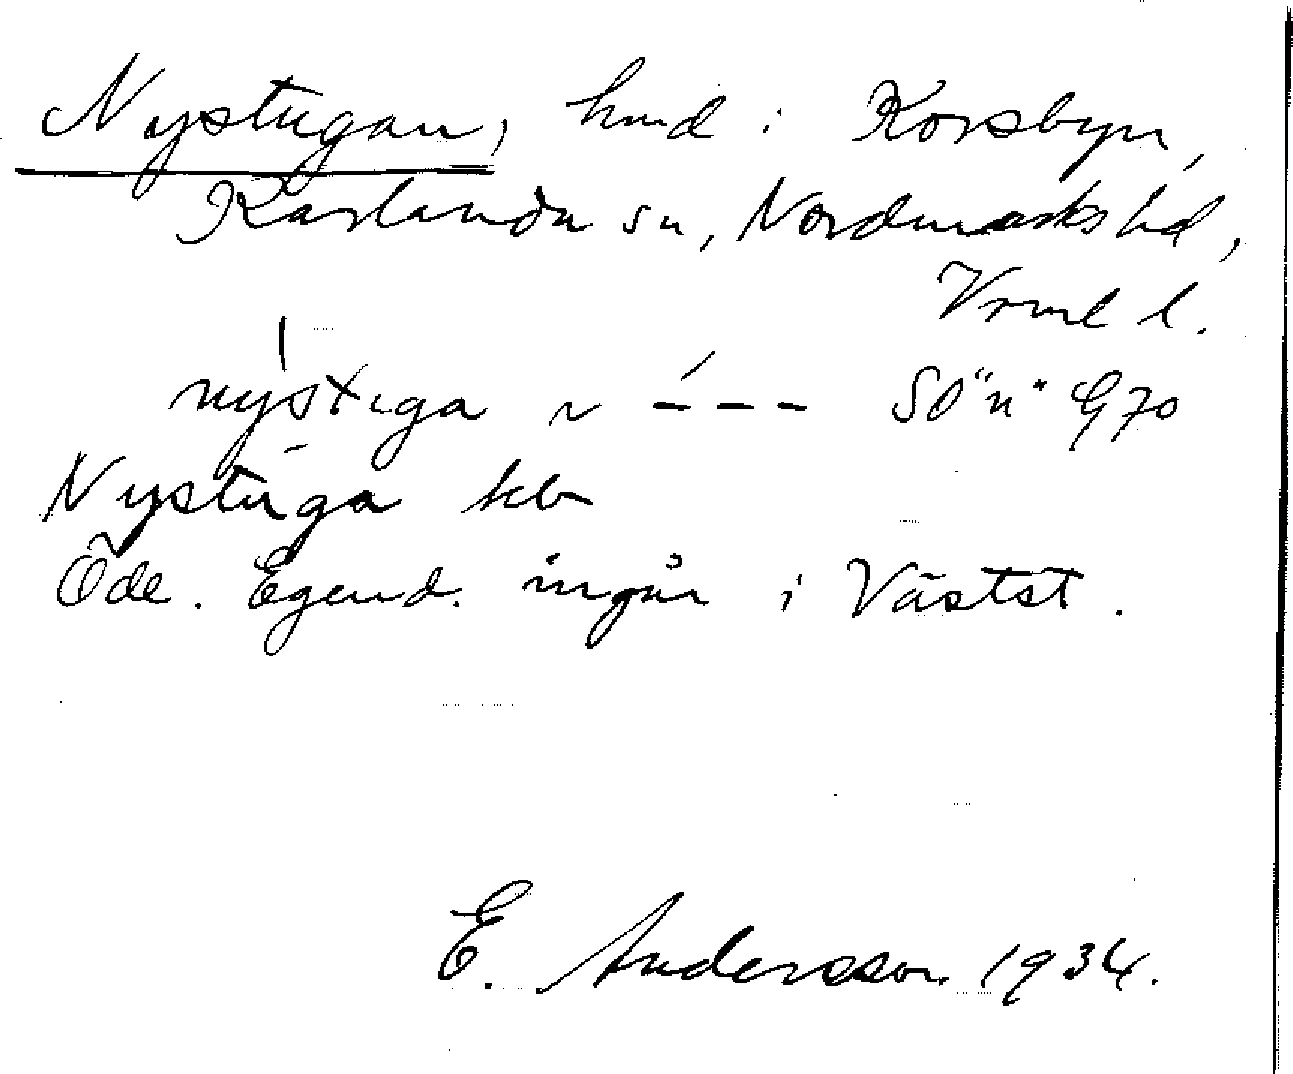 Nystugan, hmd i Korsbyn,
Karlanda sn, Nordmarks hd,
Vrml l.
nystuga ~ – – – SO "n" G70
Nystuga kb
Öde. Egend. ingår i Västst.
E. Andersson 1934.